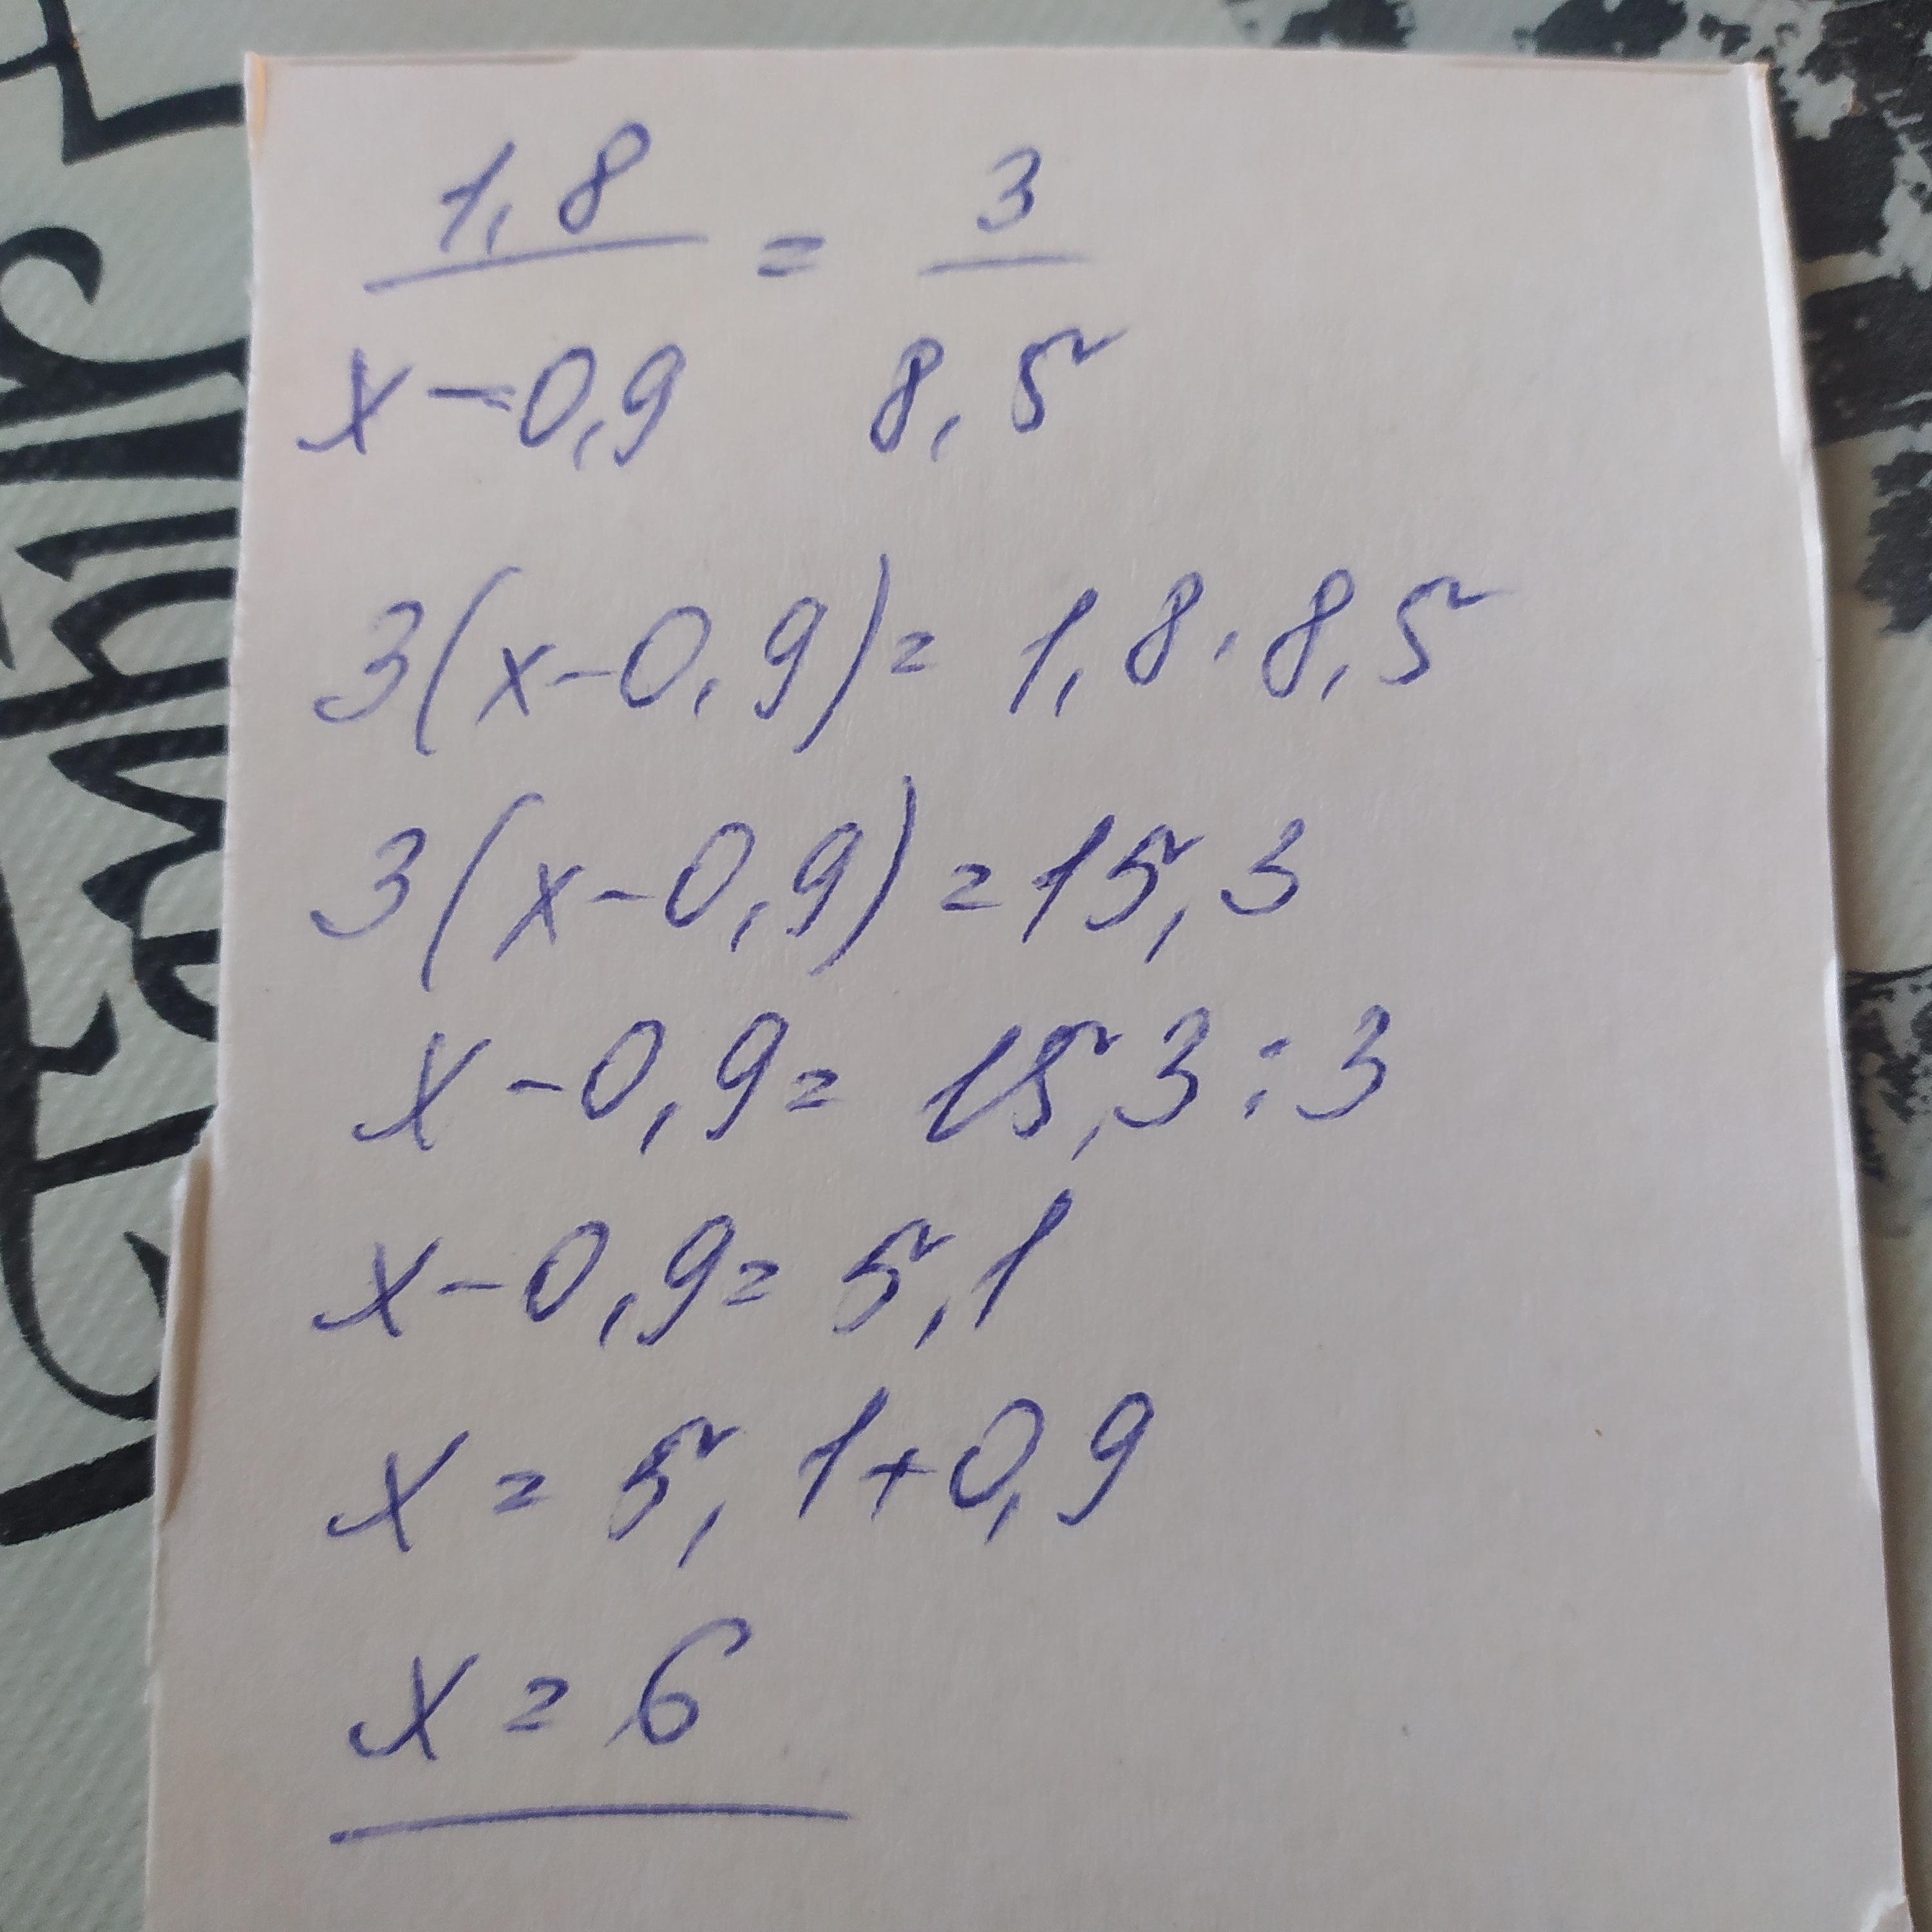 1,8 / x-0,9 = 3 / 8,5
3(x-0,9)=1,8·8,5
3(x-0,9)=15,3
x-0,9=15,3:3
x-0,9=5,1
x=5,1+0,9
x=6